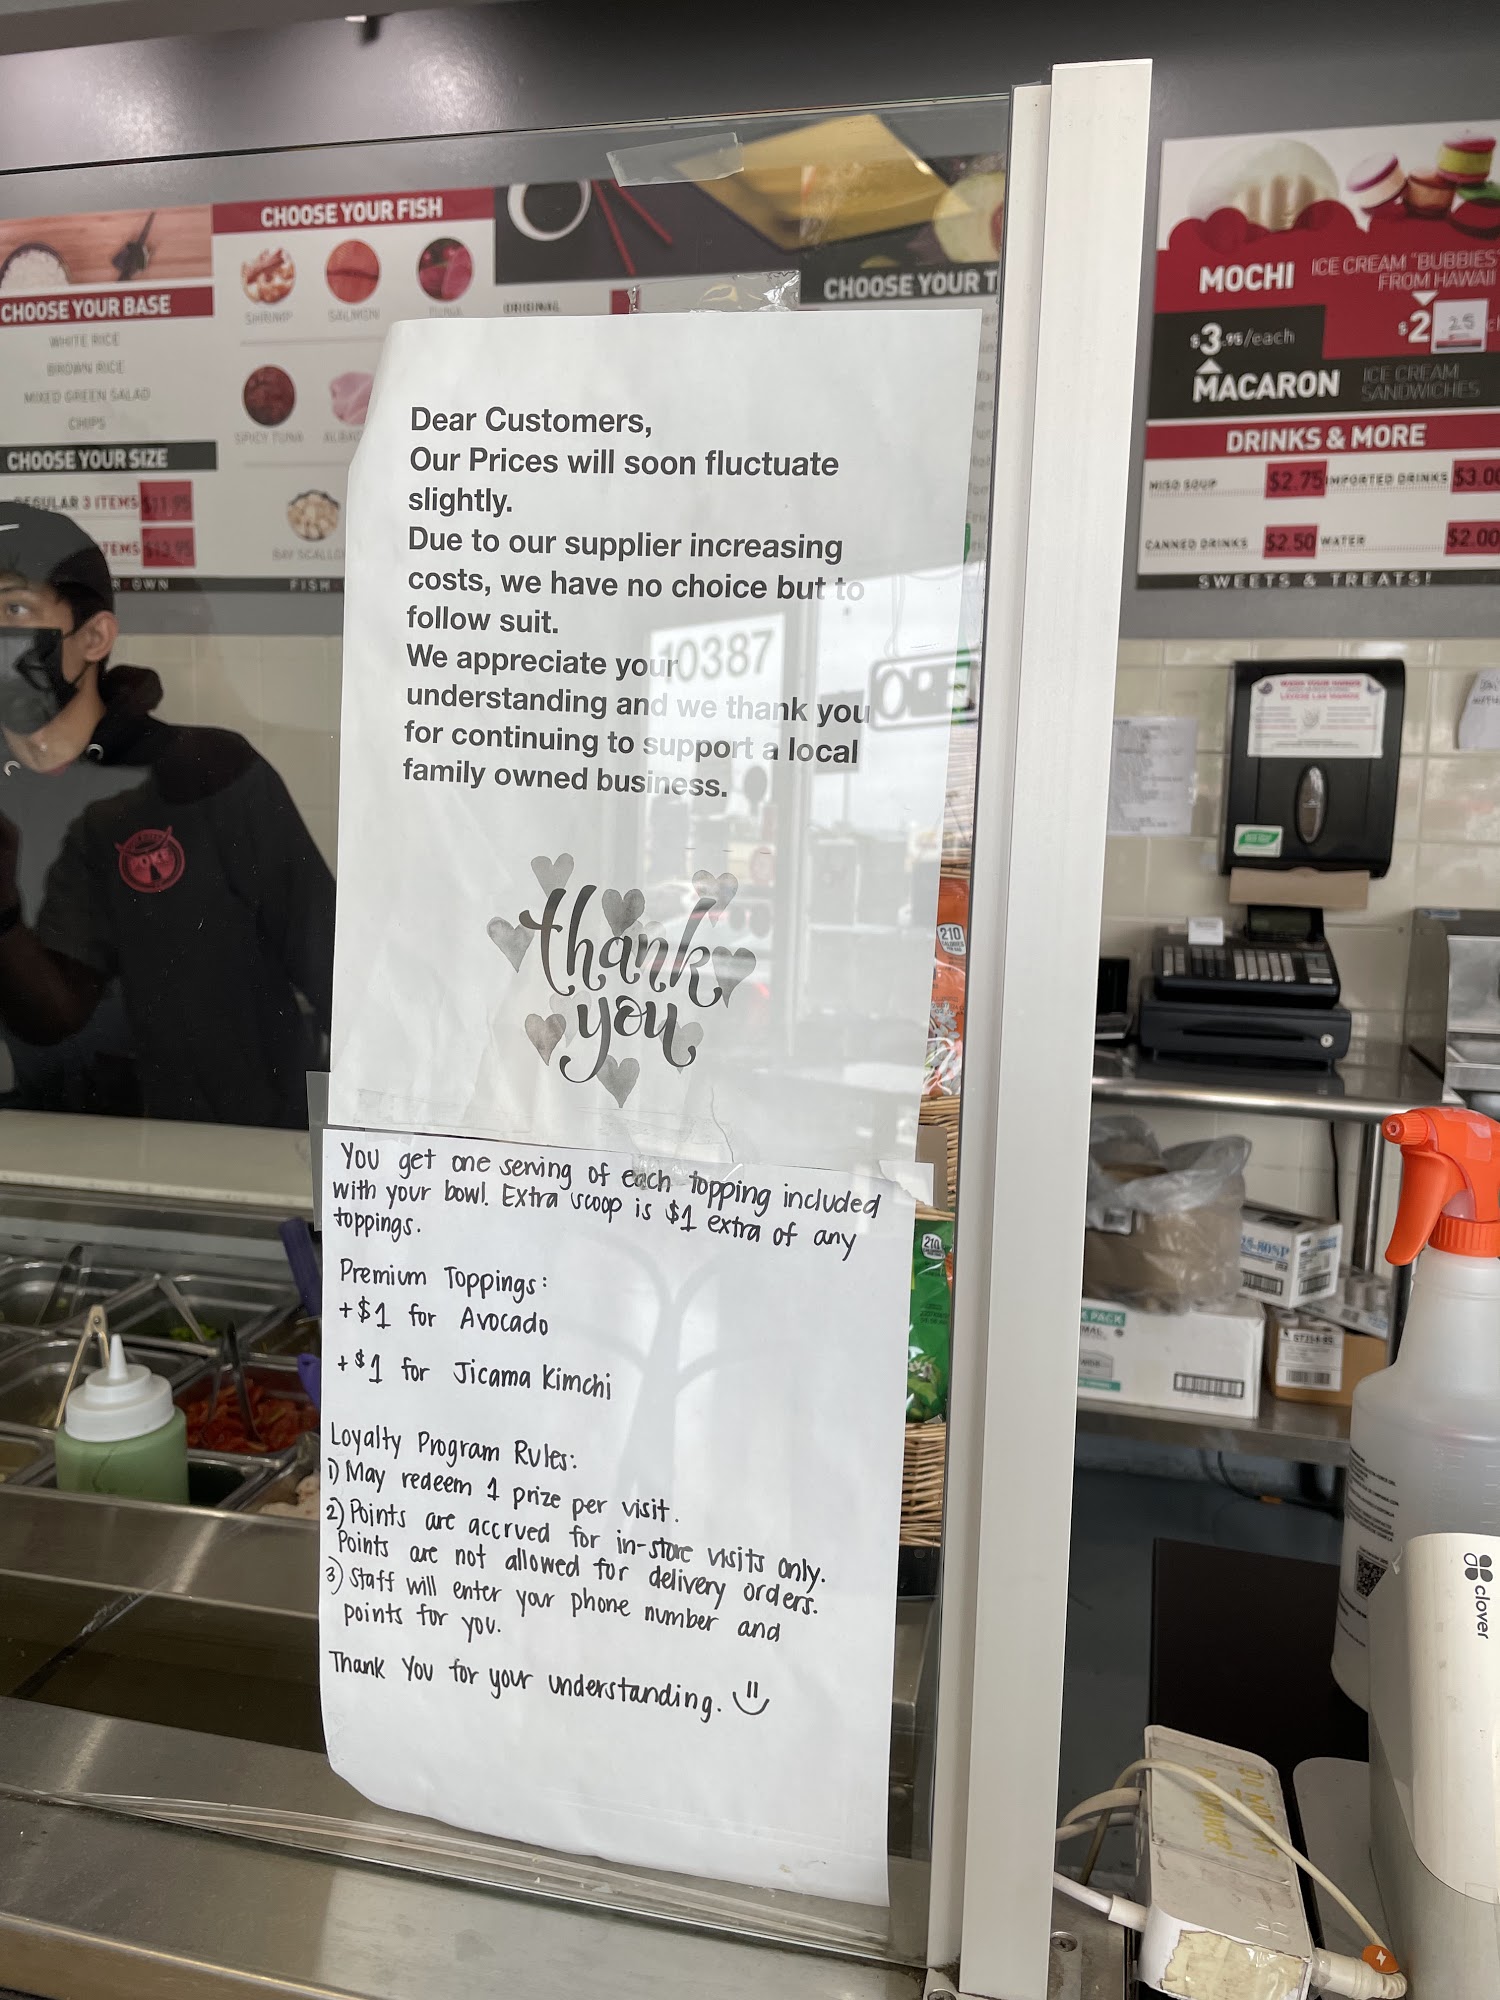 CHOOSE YOUR BASE
WHITE RICE
BROWN RICE
MIXED GREEN SALAD
CHIPS
CHOOSE YOUR SIZE
3 ITEMS $11.95
$13.95
CHOOSE YOUR FISH
SHRIMP
SALMON
TUNA
SPICY TUNA
BAY
FISH
ORIGINAL
CHOOSE YOUR T
MOCHI
ICE CREAM "BUBBIES"
FROM HAWAII
$3.95/each
$2.25
MACARON
ICE CREAM
SANDWICHES
DRINKS & MORE
MISO SOUP $2.75 IMPORTED DRINKS $3.00
CANNED DRINKS $2.50 WATER $2.00
SWEETS & TREATS!
Dear Customers,
Our Prices will soon fluctuate
slightly.
Due to our supplier increasing
costs, we have no choice but to
follow suit.
We appreciate your
understanding and we thank you
for continuing to support a local
family owned business.
10387
OPEN
thank
you
You get one serving of each topping included
with your bowl. Extra scoop is $1 extra of any
toppings.
Premium Toppings:
+$1 for Avocado
+$1 for Jicama Kimchi
Loyalty Program Rules:
1) May redeem 1 prize per visit.
2) Points are accrued for in-store visits only.
Points are not allowed for delivery orders.
3) Staff will enter your phone number and
points for you.
Thank You for your understanding.
POKE
210
210
clover